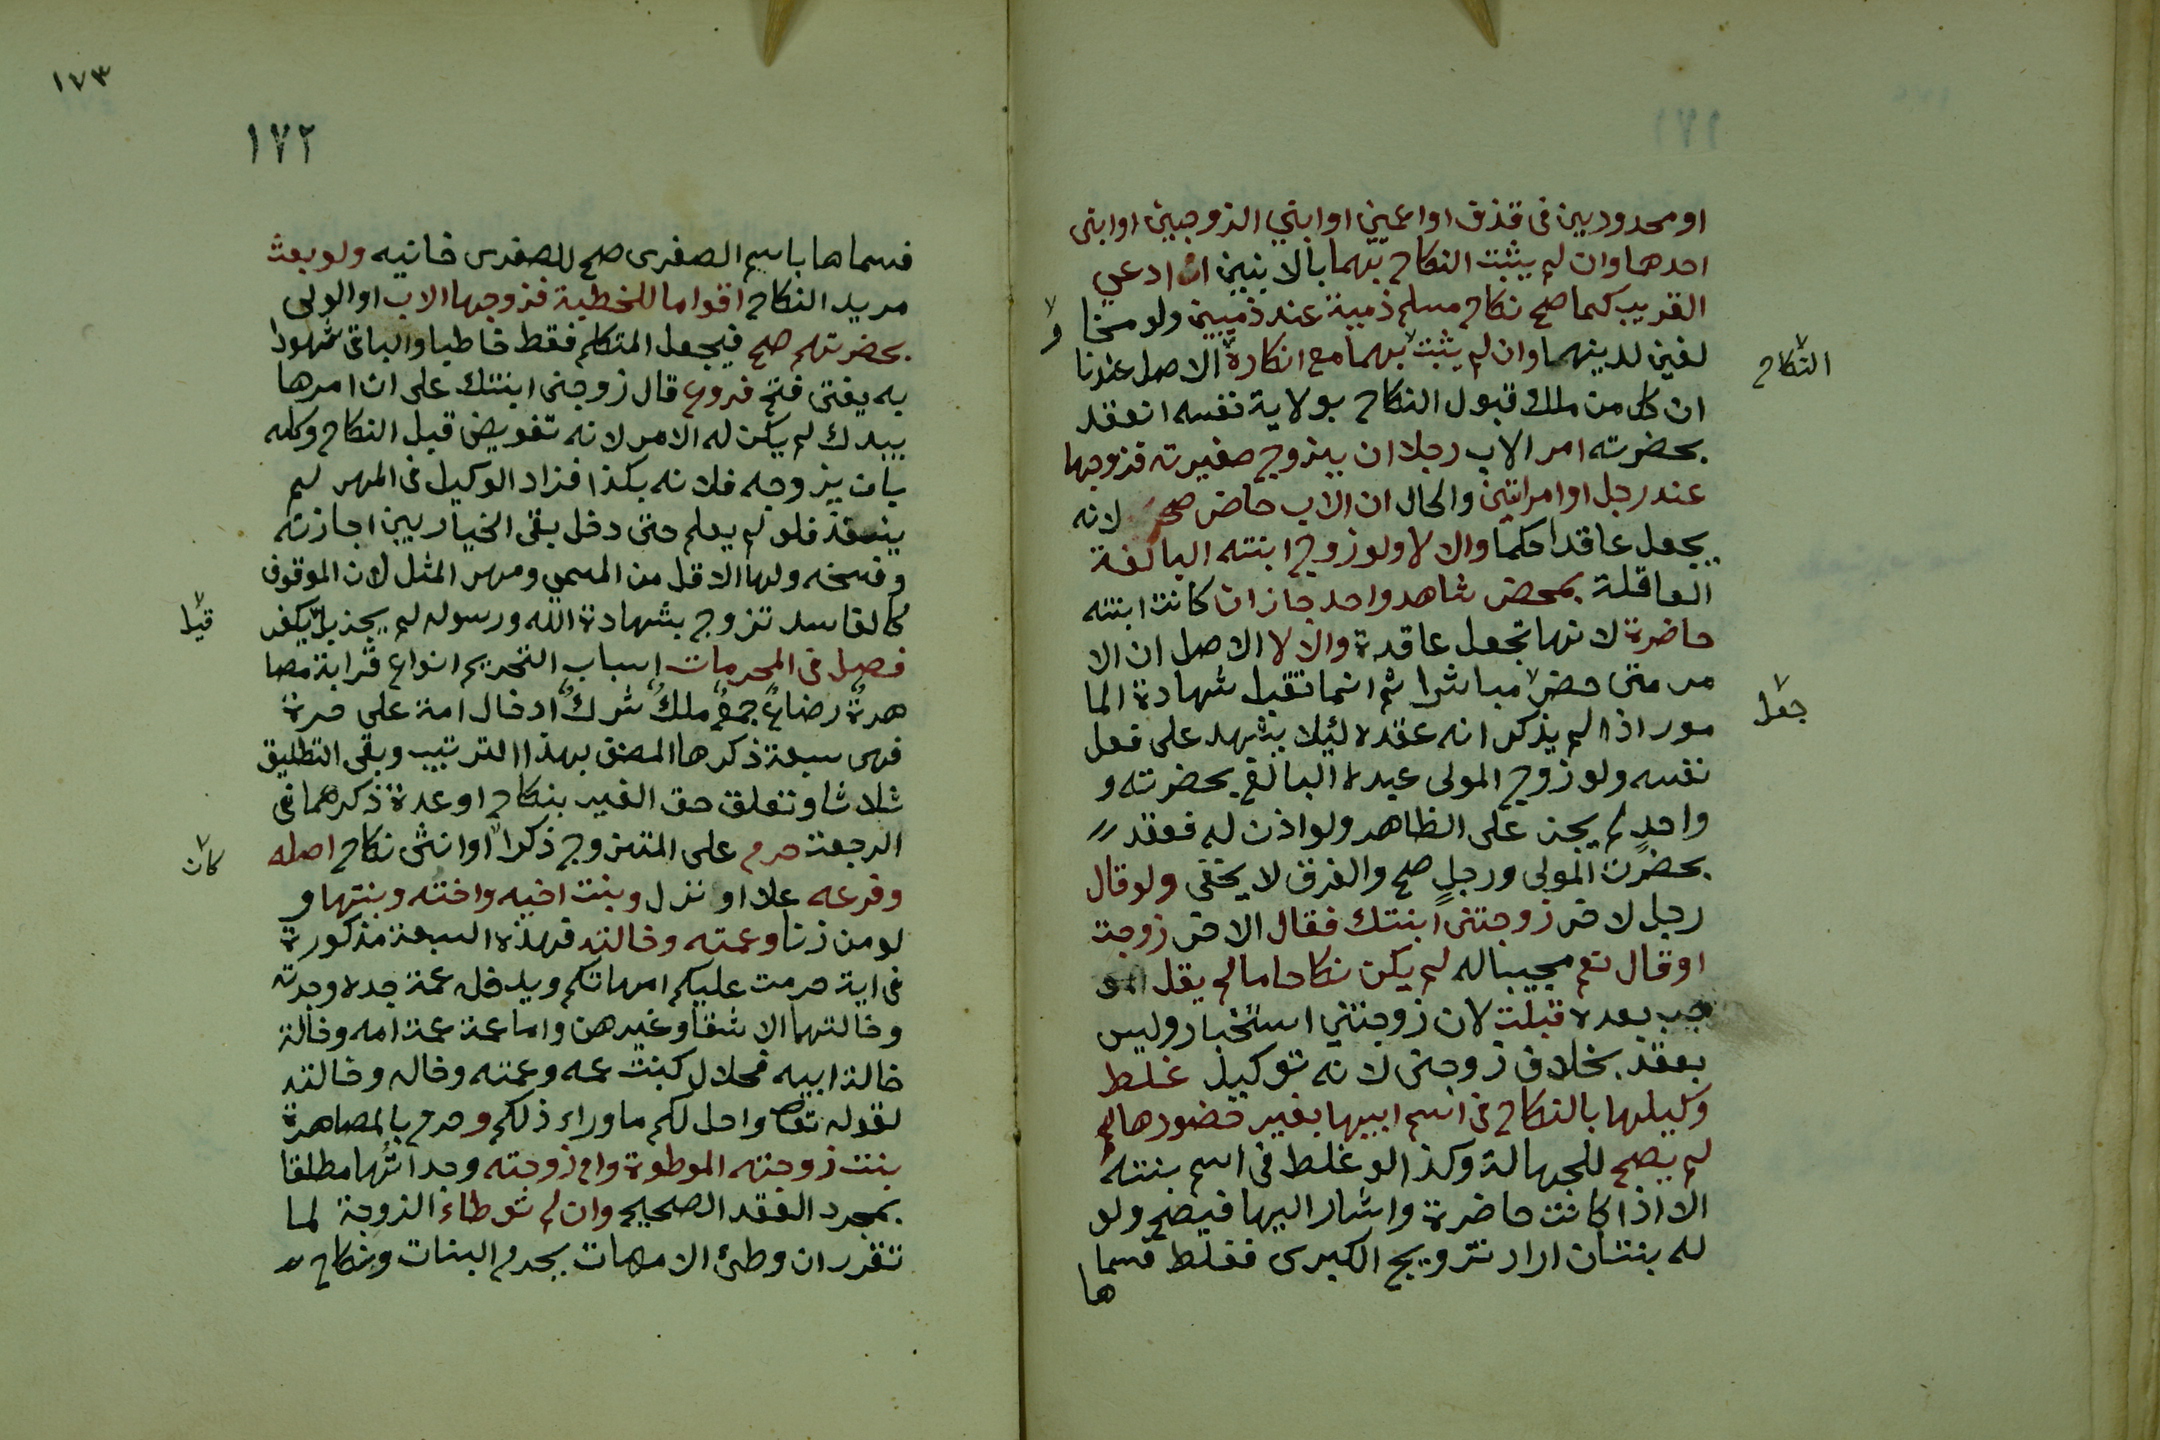 او محدودين فى قذف او اعميين او ابني الزوجين او ابنى
احدهما وان لم يثبت النكاح بهما بالابنين ان ادعى
القريب كما صح نكاح مسلم ذمية عند ذميين ولو مخا
لفين لدينهما وان لم يثبت بهما مع انكاره الاصل عندنا
النكاح
ان كل من ملك قبول النكاح بولاية نفسه انعقد
بحضرته امر الاب رجلا ان يزوج صغيرته فزوجها
عند رجل او امراتين والحال ان الاب حاضر صح لانه
يجعل عاقدا حكما والا لا ولو زوج ابنته البالغة
العاقلة بمحضر شاهد واحد جاز ان كانت ابنته
حاضرة لانها تجعل عاقدة والا لا الاصل ان الا
مر متى حضر مباشرا ثم انما تقبل شهادة الما
جعل
مور اذا لم يذكر انه عقده لئلا يشهد على فعل
نفسه ولو زوج المولى عبده البالغ بحضرته و
واحد لم يجز على الظاهر ولو اذن له فعقد
بحضرت المولى ورجل صح والفرق لا يخفى ولو قال
رجل لاخر زوجتنى ابنتك فقال الاخر زوجت
او قال نعم مجيبا له لم يكن نكاحا ما لم يقل المو
جب بعده قبلت لان زوجتني استخبار وليس
بعقد بخلاف زوجنى لانه توكيل غلط
وكيلها بالنكاح فى اسم ابيها بغير حضورها لم
لم يصح للجهالة وكذا لو غلط فى اسم بنته
الا اذا كانت حاضرة واشار اليها فيصح ولو
له بنتان اراد تزويج الكبرى فغلط فسما
ها
١٧٣
١٧٢
فسماها باسم الصغرى صح للصغرى خانيه ولو بعث
مريد النكاح اقواما للخطبة فزوجها الاب او الولى
بحضرتهم صح فيجعل المتكلم فقط خاطبا والباقى شهودا
به يفتى فتح فروع قال زوجنى ابنتك على ان امرها
بيدك لم يكن له الامر لانه تفويض قبل النكاح وكله
بان يزوجه فلانه بكذا فزاد الوكيل فى المهر لم
ينعقد فلو لم يعلم حتى دخل بقى الخيار بين اجازته
وفسخه ولها الاقل من المسمى ومهر المثل لان الموقوف
كالفاسد تزوج بشهادة الله ورسوله لم يجز بل يكفر
قيل
فصل فى المحرمات اسباب التحريم انواع قرابة مصا
هرة رضاع جمع ملك شرك ادخال امة على حرة
فهى سبعة ذكرها المصنف بهذا الترتيب وبقى التطليق
ثلاثا وتعلق حق الغير بنكاح او عدة ذكرهما فى
الرجعة حرم على المتزوج ذكرا او انثى نكاح اصله
كان
وفرعه علا او نزل وبنت اخيه واخته وبنتها و
لو من زنا وعمته وخالته فهذه السبعة مذكورة
فى اية حرمت عليكم امهاتكم ويدخل عمة جده وجدته
وخالتهما الاشقا وغيرهن واما عمة عمة امه وخالة
خالة ابيه فحلال كبنت عمه وعمته وخاله وخالته
لقوله تعا واحل لكم ما وراء ذلكم وحرم بالمصاهرة
بنت زوجته الموطوة وام زوجته وجداتها مطلقا
بمجرد العقد الصحيح وان لم توطاء الزوجة لما
تقرر ان وطئ الامهات يحرم البنات ونكاح